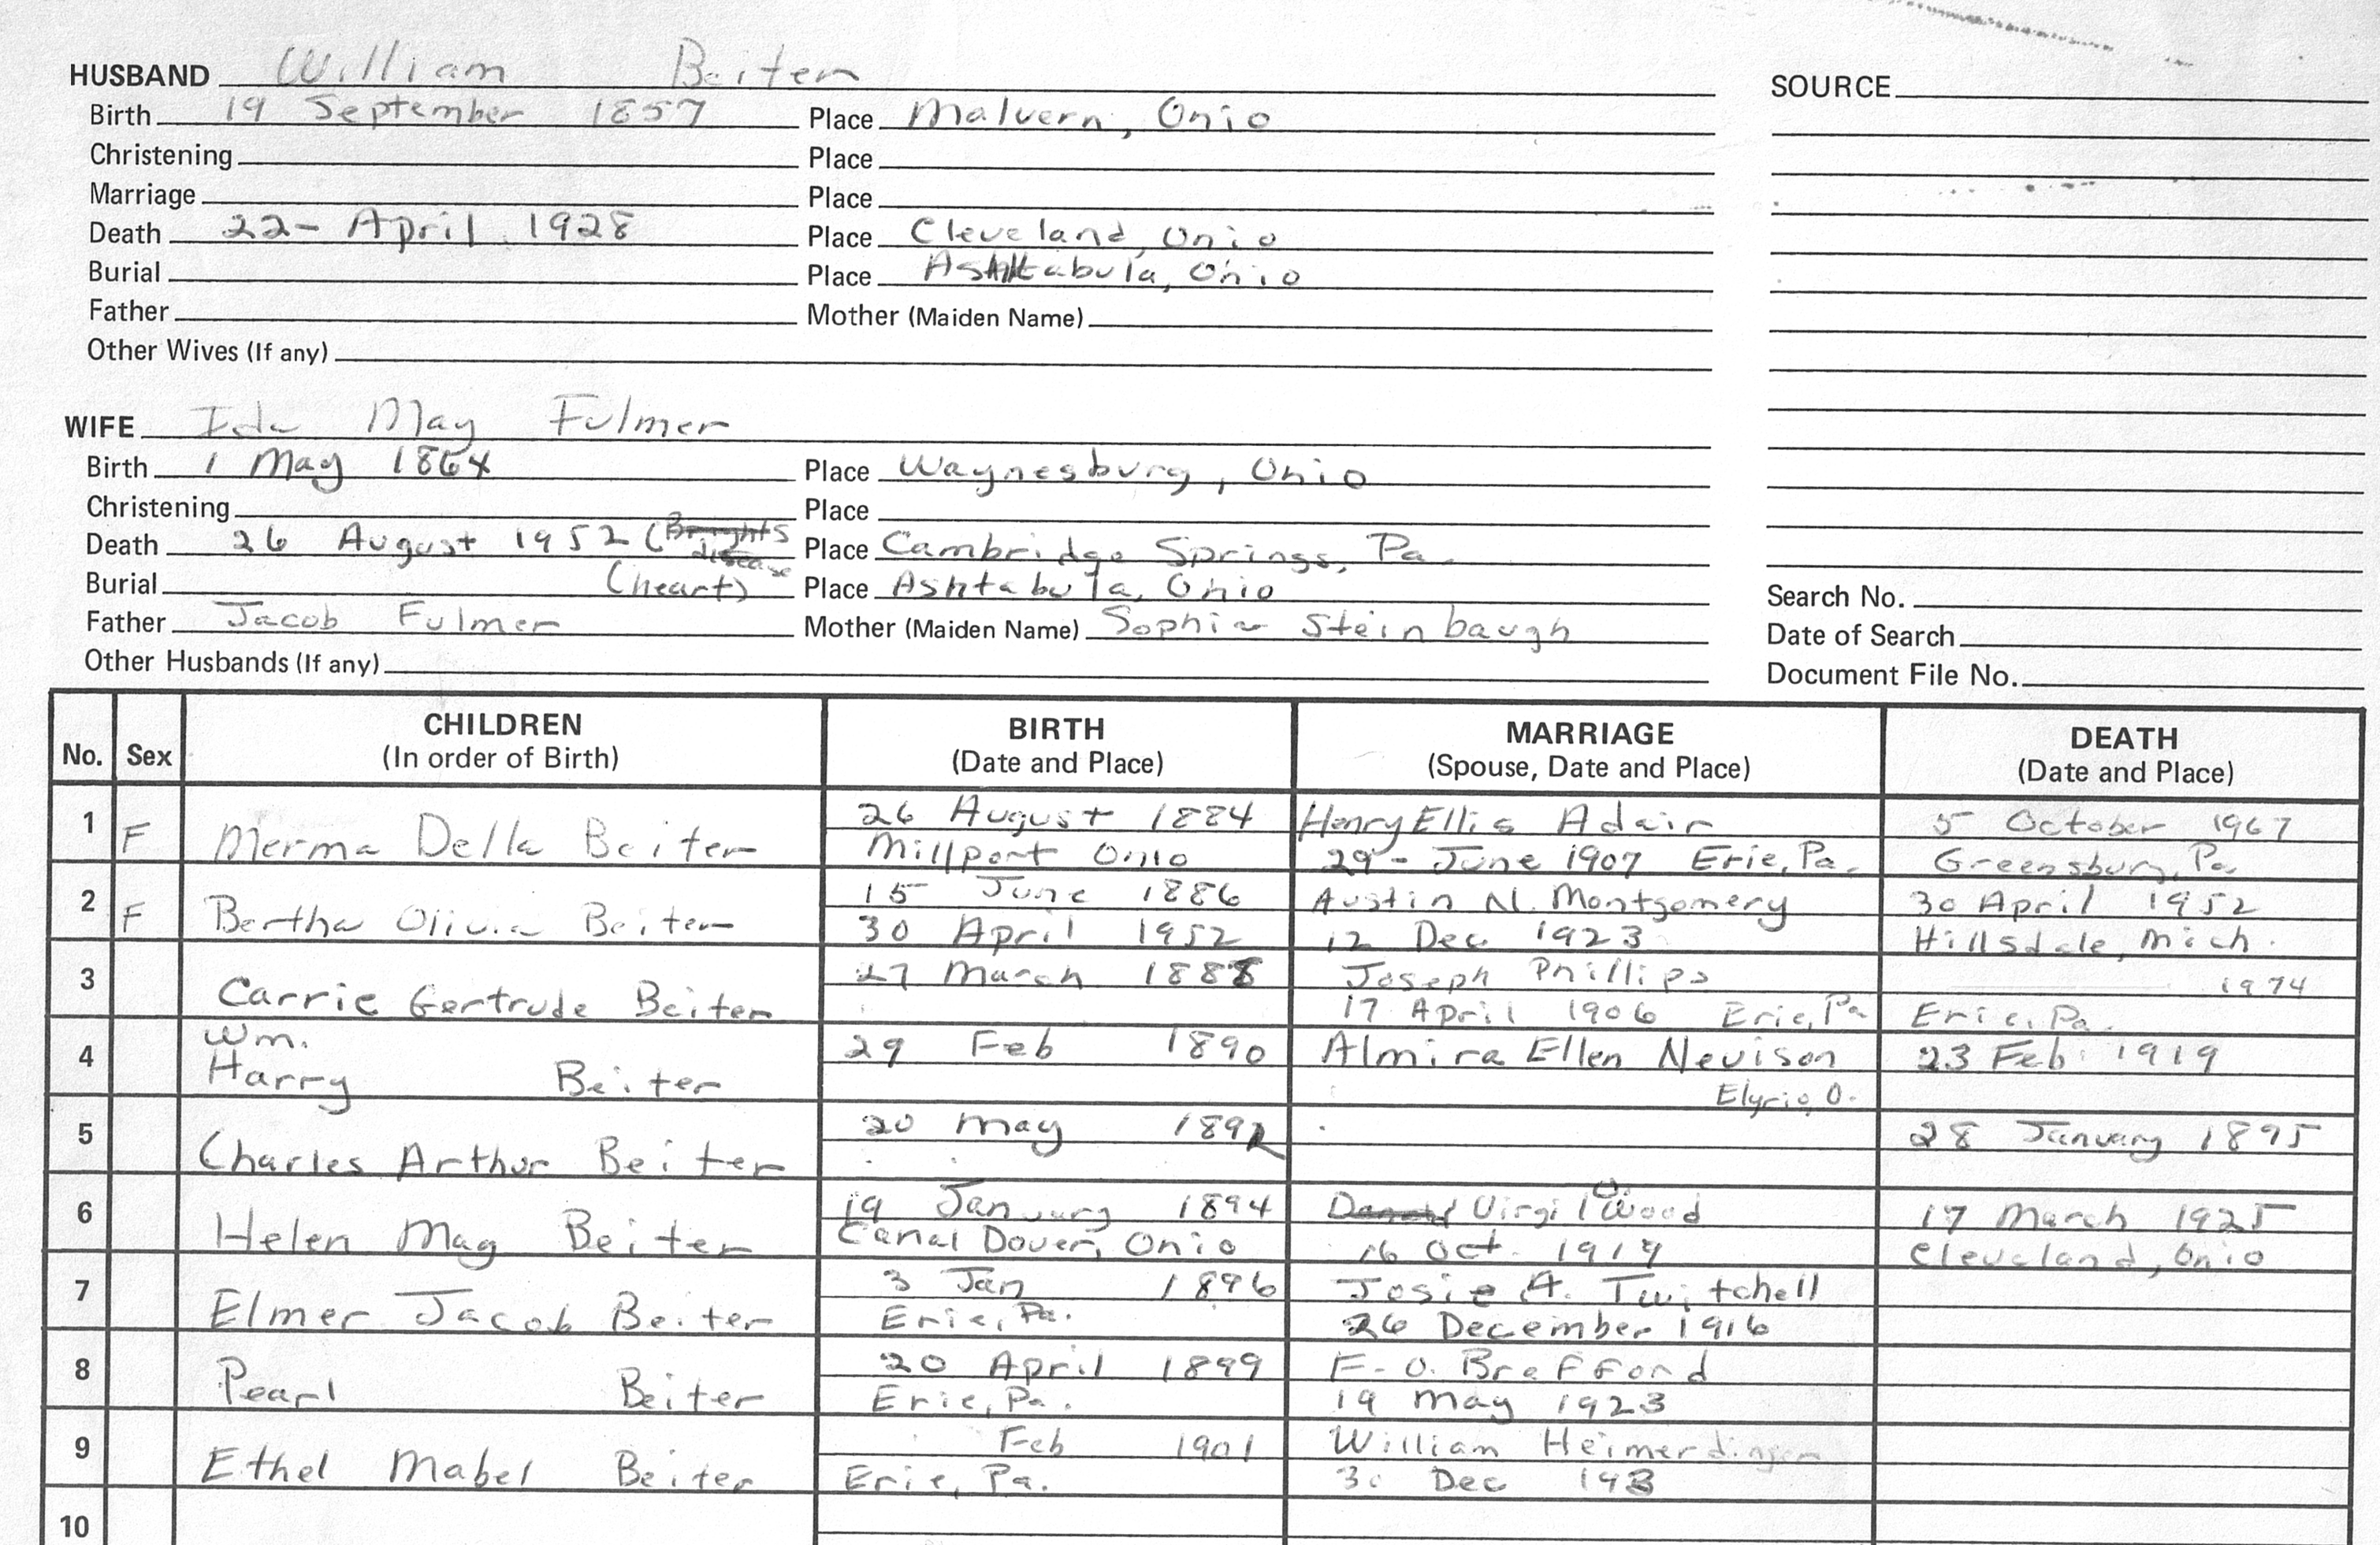 HUSBAND William Beiter
SOURCE
Birth 19 September 1857 Place Malvern, Ohio
Christening Place
Marriage Place
Death 22- April 1928 Place Cleveland, Ohio
Burial Place Ashtabula, Ohio
Father Mother (Maiden Name)
Other Wives (If any)
WIFE Ida May Fulmer
Birth 1 May 1864 Place Waynesburg, Ohio
Christening Place
Death 26 August 1952 (Brights disease Place Cambridge Springs, Pa.
Burial (heart) Place Ashtabula, Ohio
Search No.
Father Jacob Fulmer Mother (Maiden Name) Sophia Steinbaugh
Date of Search
Other Husbands (If any)
Document File No.
No. Sex CHILDREN (In order of Birth) BIRTH (Date and Place) MARRIAGE (Spouse, Date and Place) DEATH (Date and Place)
1 F Merma Della Beiter
26 August 1884 Henry Ellis Adair 5 October 1967
Millport Ohio 29- June 1907 Erie, Pa. Greensburg, Pa
2 F Bertha Olivia Beiter
15 June 1886 Austin N. Montgomery 30 April 1952
30 April 1952 12 Dec 1923 Hillsdale, Mich.
3 Carrie Gertrude Beiter
27 March 1888 Joseph Phillips 1974
17 April 1906 Erie, Pa Erie, Pa.
4 Wm.
Harry Beiter
29 Feb 1890 Almira Ellen Nevison 23 Feb. 1919
Elyria, O.
5 Charles Arthur Beiter
20 May 1892 28 January 1895
6 Helen May Beiter
19 January 1894 Virgil O. Wood 17 March 1925
Canal Dover, Ohio 16 Oct. 1919 Cleveland, Ohio
7 Elmer Jacob Beiter
3 Jan 1896 Josie A. Twitchell
Erie, Pa. 26 December 1916
8 Pearl Beiter
20 April 1899 F. O. Brafford
Erie, Pa. 19 May 1923
9 Ethel Mabel Beiter
Feb 1901 William Heimerdinger
Erie, Pa. 30 Dec
10